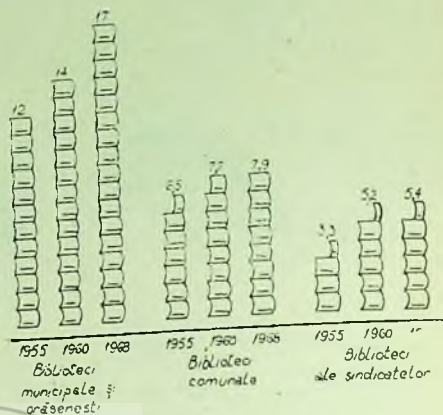 12
14
17
7,2
7,9
5,2
5,4
1955 1960 1968
Biblioteci
municipale și
orășenești
1955 1960 1968
Biblioteci
comunale
1955 1960
Biblioteci
ale sindicatelor